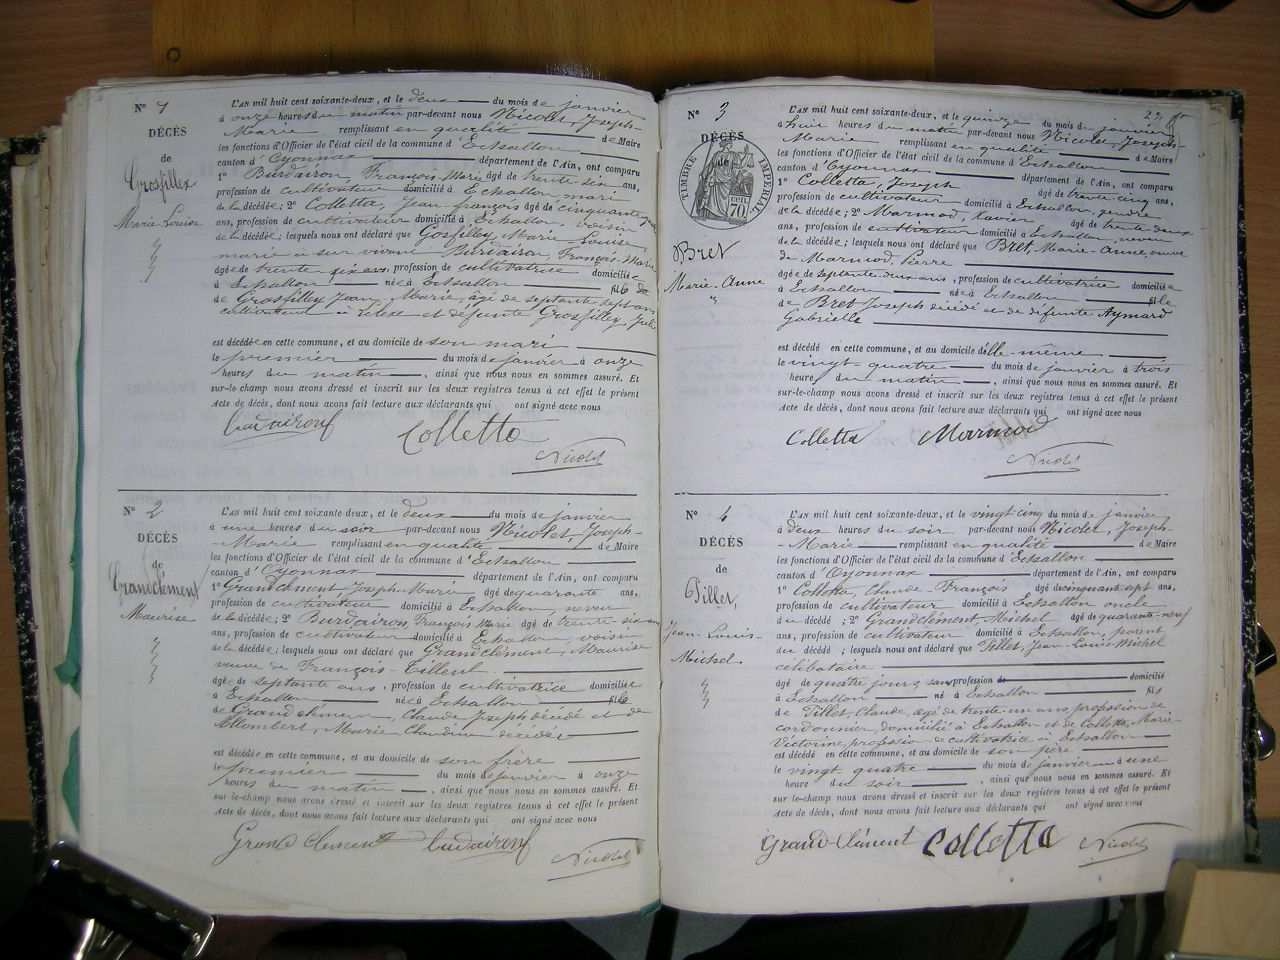 N° 1
DÉCÈS
de
Grosfilley
Marie-Louise
L'AN mil huit cent soixante-deux, et le deux du mois de janvier
à onze heures du matin par-devant nous Nicolet, Joseph-
Marie remplissant en qualité de Maire
les fonctions d'Officier de l'état civil de la commune d'Echallon
canton d'Oyonnax département de l'Ain, ont comparu
1° Burdairon, François Marie âgé de trente-six ans,
profession de cultivateur domicilié à Echallon, mari
de la décédée; 2° Colletta, Jean françois âgé de cinquante
ans, profession de cultivateur domicilié à Echallon, voisin
de la décédée; lesquels nous ont déclaré que Gosfilley, Marie Louise
mariée à sur vivant Burdairon, François-Marie
âgée de trente six ans, profession de cultivatrice domiciliée
à Echallon née à Echallon fille de
de Grosfilley Jean, Marie, âgé de septante sept ans
cultivateur à et défunte Grosfilley,
est décédée en cette commune, et au domicile de son mari
le premier du mois de janvier à onze
heures du matin, ainsi que nous nous en sommes assuré. Et
sur-le-champ nous avons dressé et inscrit sur les deux registres tenus à cet effet le présent
Acte de décès, dont nous avons fait lecture aux déclarants qui ont signé avec nous
burdaironf Colletta
Nicolet
N° 2
DÉCÈS
de
Grandclément
Maurise
L'AN mil huit cent soixante-deux, et le deux du mois de janvier
à une heures du soir par-devant nous Nicolet, Joseph-
Marie remplissant en qualité de Maire
les fonctions d'Officier de l'état civil de la commune d'Echallon
canton d'Oyonnax département de l'Ain, ont comparu
1° Grandclément, Joseph-Marie âgé de quarante ans,
profession de cultivateur domicilié à Echallon, neveu
de la décédée; 2° Burdairon, François Marie âgé de trente-six ans
ans, profession de cultivateur domicilié à Echallon, voisin
de la décédée; lesquels nous ont déclaré que Grandclément, Maurise
veuve de François-Tilleul
âgée de septante ans, profession de cultivatrice domiciliée
à Echallon née à Echallon fille
de Grandclément, Claude Joseph décédé et de
Allombert, Marie Claudine décédée
est décédée en cette commune, et au domicile de son frère
le premier du mois de janvier à onze
heures du matin, ainsi que nous nous en sommes assuré. Et
sur le-champ nous avons dressé et inscrit sur les deux registres tenus à cet effet le présent
Acte de décès, dont nous avons fait lecture aux déclarants qui ont signé avec nous
Grand Clement burdaironf
Nicolet
N° 3
DÉCÈS
de
TIMBRE IMPÉRIAL
70 cen
Bret
Marie-Anne
L'AN mil huit cent soixante-deux, et le quinze du mois de janvier
à huit heures du matin par-devant nous Nicolet, Joseph-
Marie remplissant en qualité de Maire
les fonctions d'Officier de l'état civil de la commune d'Echallon
canton d'Oyonnax département de l'Ain, ont comparu
1° Colletta, Joseph âgé de trente cinq ans,
profession de cultivateur domicilié à Echallon, gendre
de la décédée; 2° Marmod, Xavier âgé de trente deux
ans, profession de cultivateur domicilié à Echallon, neveu
de la décédée; lesquels nous ont déclaré que Bret, Marie-Anne, veuve
de Marmod, Pierre
âgée de septante deux ans, profession de cultivatrice domiciliée
à Echallon née à Echallon fille
de Bret Joseph décédé et de défunte Aymard
Gabrielle
est décédé en cette commune, et au domicile d'elle-même
le vingt-quatre du mois de janvier à trois
heures du matin, ainsi que nous nous en sommes assuré. Et
sur-le-champ nous avons dressé et inscrit sur les deux registres tenus à cet effet le présent
Acte de décès, dont nous avons fait lecture aux déclarants qui ont signé avec nous
Colletta Marmod
Nicolet
N° 4
DÉCÈS
de
Tillet,
Jean-Louis-
Michel
L'AN mil huit cent soixante-deux, et le vingt cinq du mois de janvier,
à deux heures du soir par-devant nous Nicolet, Joseph-
Marie remplissant en qualité de Maire
les fonctions d'Officier de l'état civil de la commune d'Echallon
canton d'Oyonnax département de l'Ain, ont comparu
1° Colletta, Claude François âgé de cinquante sept ans,
profession de cultivateur domicilié à Echallon oncle
du décédé; 2° Grandclément, Michel âgé de quarante-neuf
ans, profession de cultivateur domicilié à Echallon, parent
du décédé; lesquels nous ont déclaré que Tillet, Jean-Louis-Michel
célibataire
âgé de quatre jours, sans profession de domicilié
à Echallon né à Echallon fils
de Tillet, Claude, âgé de trente-un ans, profession de
cordonnier, domicilié à Echallon et de Colletta, Marie-
Victorine, profession de cultivatrice à Echallon
est décédé en cette commune, et au domicile de son père
le vingt quatre du mois de janvier à une
heure du soir, ainsi que nous nous en sommes assuré. Et
sur-le-champ nous avons dressé et inscrit sur les deux registres tenus à cet effet le présent
Acte de décès, dont nous avons fait lecture aux déclarants qui ont signé avec nous
Grand-Clément Colletta Nicolet